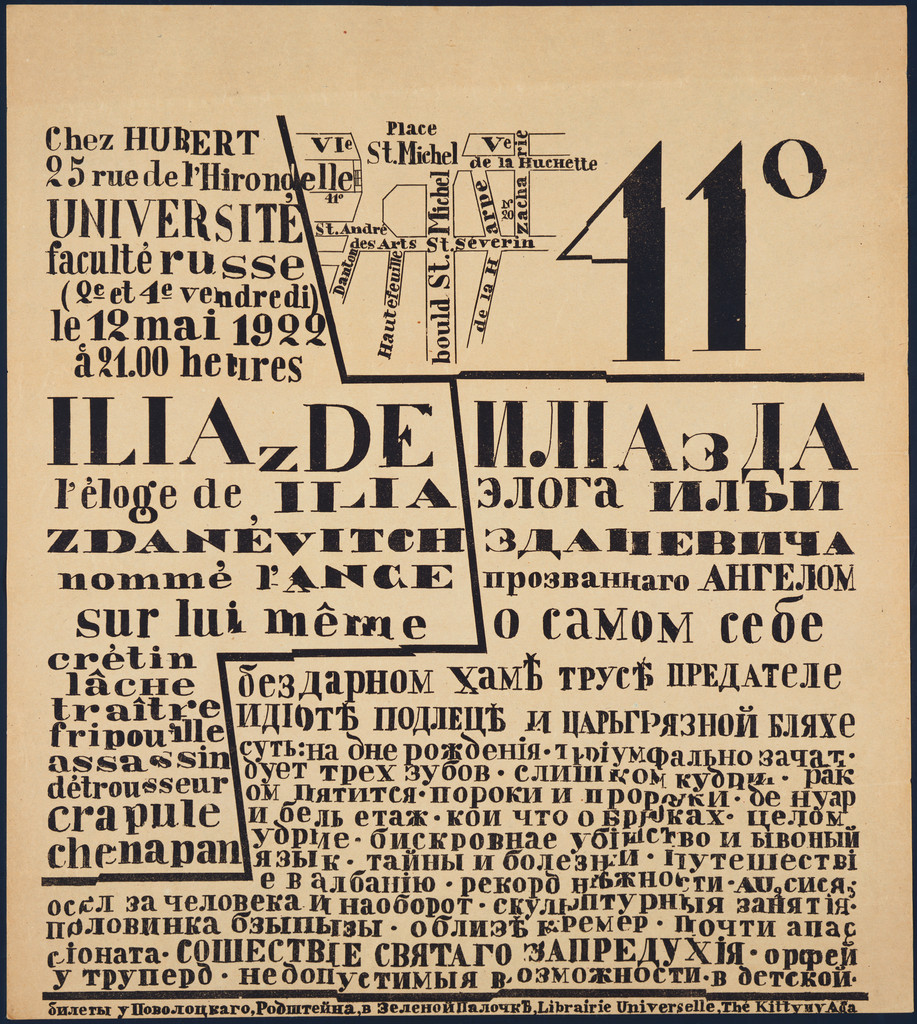 Chez HUBERT
25 rue de l'Hirondelle
UNIVERSITÉ
faculté russe
(2e et 4e vendredi)
le 12 mai 1922
à 21.00 heures
Place
St. Michel
VIe
Ve
de la Huchette
41°
St. André
des Arts
St. Séverin
Danton
Hautefeuille
bould St. Michel
de la Harpe
No 20
Zacharie
41°
ILIAzDE
l'éloge de ILIA
ZDANÉVITCH
nommé l'ANGE
sur lui même
crétin
lâche
traître
fripouille
assassin
détrousseur
crapule
chenapan
ИЛІАзДА
элога ИЛЬИ
ЗДАНЕВИЧА
прозваннаго АНГЕЛОМ
о самом себе
бездарном хамѢ трусѢ предателе
идіотѢ подлецѢ и царьгрязной бляхе
суть: на дне рожденія · тріумфально зачат ·
дует трех зубов · слишком кудри · рак
ом пятится · пороки и пророки · де нуар
и бель етаж · кои что о брюках · целом
удрие · бискровнае убійство и ывоный
язык · тайны и болезни · путешестві
е в албанію · рекорд нѣжности ·
осел за человека и наоборот · скульптурныя занятія ·
половинка бзыпызы · облизѣ кремер · почти апас
сіоната · СОШЕСТВІЕ СВЯТАГО ЗАПРЕДУХІЯ · орфей
у труперд · недопустимыя возможности · в детской ·
билеты у Поволоцкаго, Родштейна, в Зеленой Палочкѣ, Librairie Universelle, The Kitty